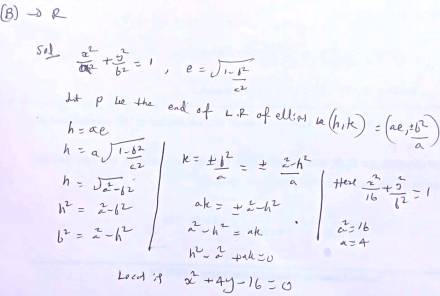 (B) → R
Sol x²/a² + y²/b² = 1 , e = √(1-b²/a²)
Let P be the end of L.R of ellipse is (h,k) = (ae, ±b²/a)
h = ae
h = a√(1-b²/a²)
h = √a²-b²
h² = a²-b²
b² = a²-h²
k = ±b²/a = ± a²-h²/a
ak = ± a²-h²
a²-h² = ak
h²-a²+ak=0
Here x²/16 + y²/b² = 1
a²=16
a=4
Locus is x²+4y-16=0